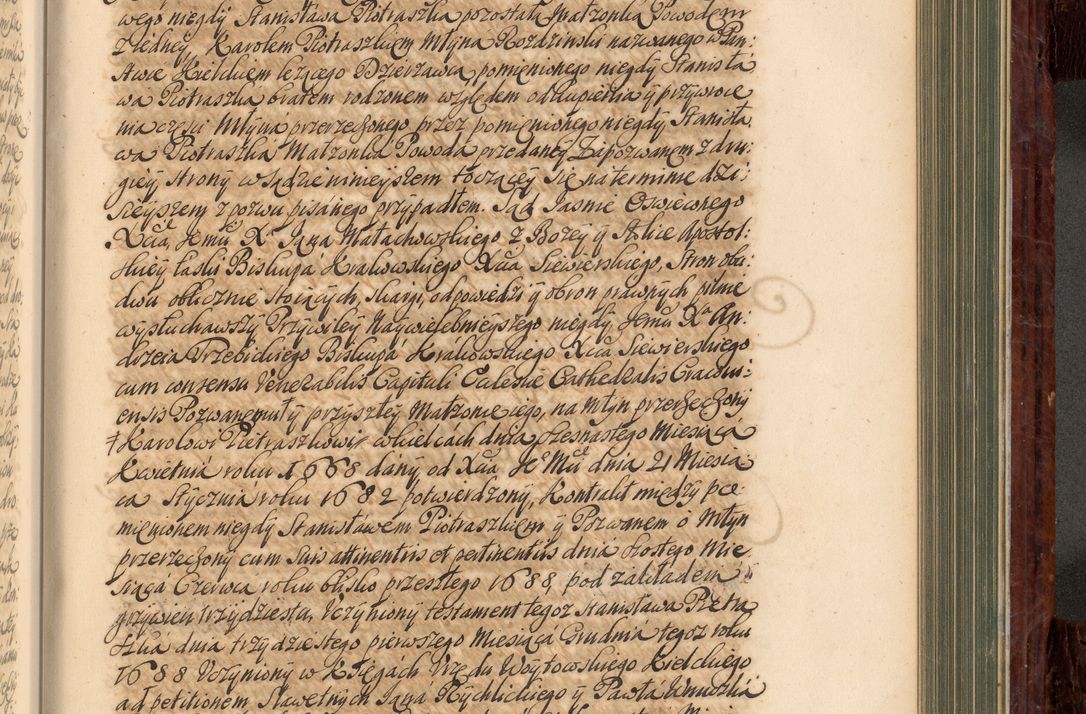 wego niegdy Stanisława Piotraszka pozostałą Małżonką Powodem
z iedney, Karolem Piotraszkiem Młyna Rozdzinski nazwanego w Pań
stwie Kieleckiem leżącego Dzierzawcą, pomienionego niegdy Stanisła
wa Piotraszka bratem rodzonem względem odkupienia y przywroce
nia części Młyna przerzeczonego przez pomienionego niegdy Stanisła
wa Piotraszka Małżonka Powoda przedaney Zapozwanem z dru
giey strony w Sądzie ninieyszem toczącey się na terminie dzi:
sieyszem z pozwu pisanego przypadłem. Sąd Jaśnie Oswieconego
Xcia Jemci Xa Jana Małachowskiego z Bożey y S. Stolice Apostol:
skiey łaski Biskupa Krakowskiego Xcia Siewierskiego, Stron obu
dwu oblicznie stoiących, skargi, odpowiedzi y obron prawnych pilnie
wysłuchawszy Przywiley Naywielebnieyszego niegdy Jemci Xa An
drzeia Trzebickiego Biskupa Krakowskiego Xcia Siewierskiego
cum consensu Venerabilis Capituli Eclesie Cathedralis Cracovi:
ensis Pozwanemu y przyszłey Małżonce iego, na Młyn przerzeczony
† Karolowi Pietraszkowi w Kielcach dnia szesnastego Miesiąca
Kwietnia roku 1668 dany, od Xcia Je Mci dnia 21 Miesią
ca Stycznia roku 1682 potwierdzony, Kontrakt między po:
mienionem niegdy Stanisławem Piotraszkiem y Pozwanem o Młyn
przerzeczony cum suis attinentiis et pertinentiis dnia szostego Mie
siąca Czerwca roku blisko przeszłego 1688 pod zakładem
grzywien trzydziestu, Uczyniony testament tegoz Stanisława Pietra
szka dnia trzydziestego pierwszego Miesiąca Grudnia tegoz roku
1688 Uczyniony w Xięgach Urzędu Woytowskiego Kielckiego
ad petitionem Sławetnych Jana Rychlickiego y Pawła